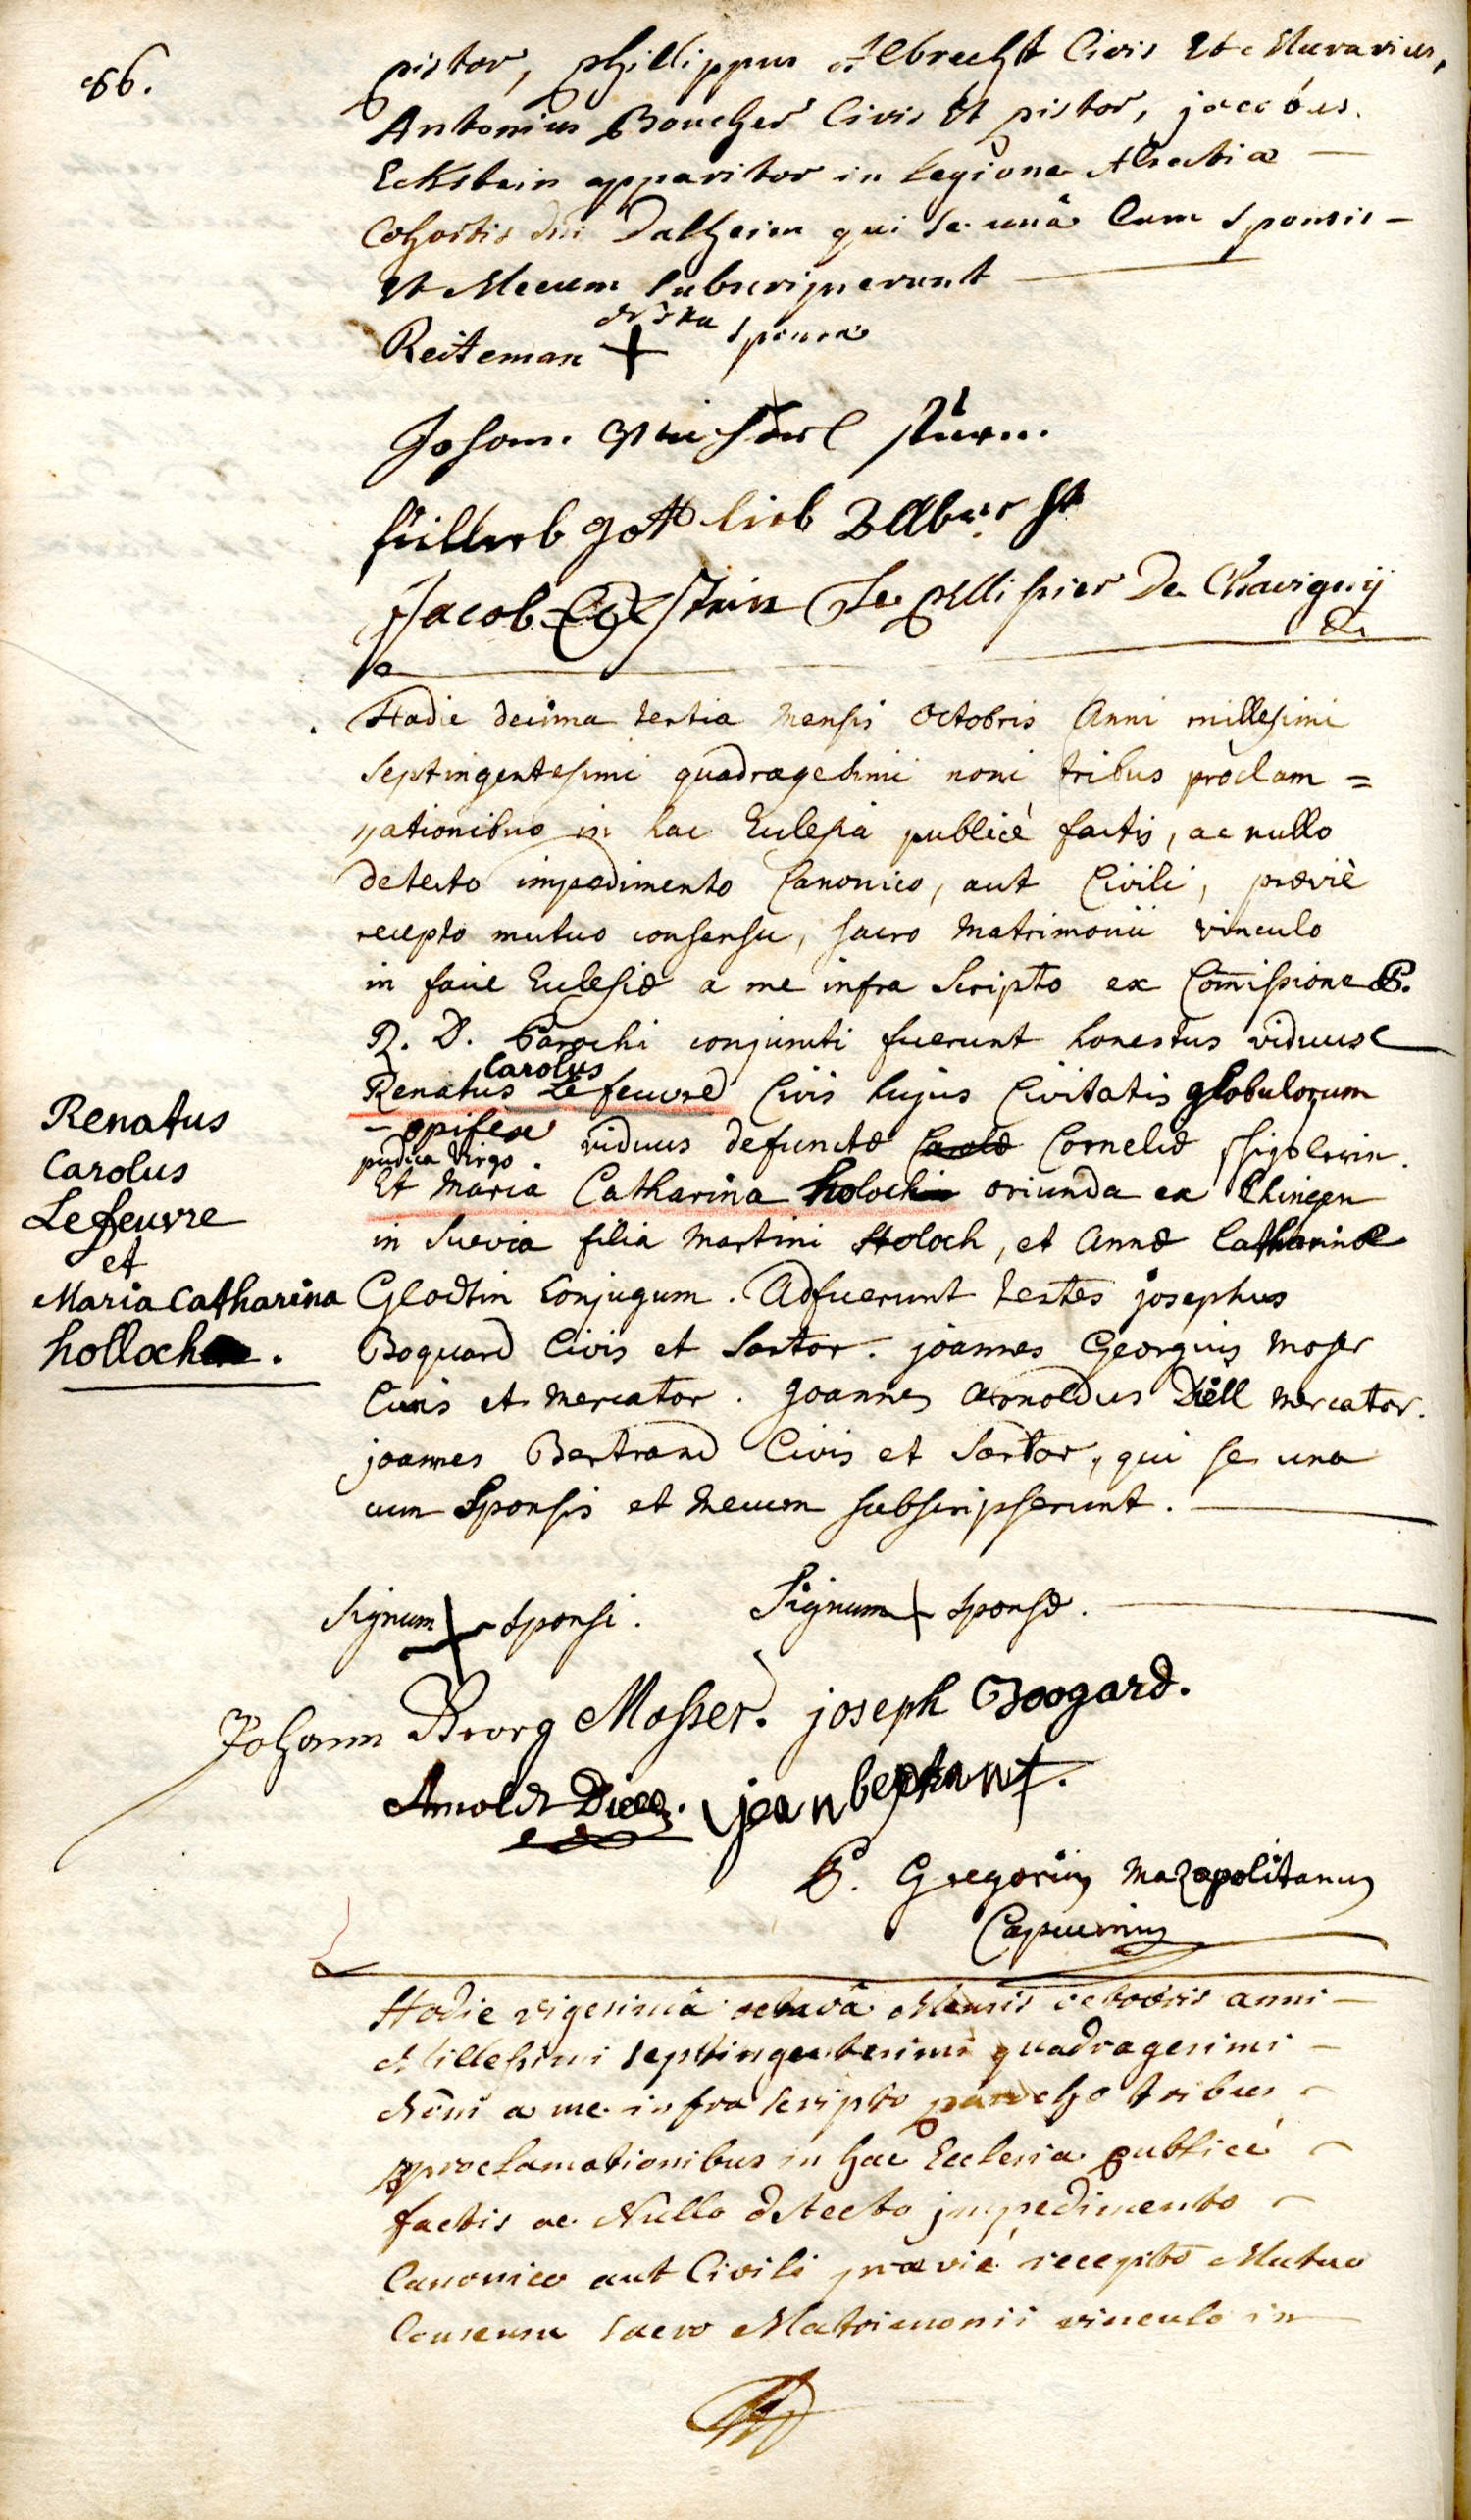 86.
pistor, phillippus Albrecht Civis Et Murarius,
Antonius Boucher Civis Et pistor, jacobus
Eckstein apparitor in legione Alsatiæ —
Cohortis dni Dalheim qui se unâ Cum Sponsis —
Et Mecum Subscripserunt —
Reiteman + sponsa
Johann Michael Sturm
gottlieb
Jacob Eckstein Le pellissier De Chavignÿ
Hodie decima tertia mensis octobris Anni millesimi
Septingentesimi quadragesimi noni tribus proclam =
nationibus in hac Eclesia publicè factis, ac nullo
detecto impedimento Canonico, aut Civili, præviè
recepto mutuo consensu, sacro Matrimonii vinculo
in facie Eclesiæ a me infra Scripto ex Commissione P.
R. D. Parochi conjuncti fuerunt honestus viduus
Carolus
Renatus Lefeuvre Civis hujus Civitatis globulorum
– opifex viduus defunctæ Corneliæ
pudica virgo.
Et Maria Catharina holoch oriunda ex Ehingen
in Suevia filia Martini Holoch, et Annæ Catharinæ
Glodtin Conjugum. Adfuerunt testes josephus
Boquard Civis et Sartor. joannes Georgius Moser
Civis et Mercator. Joannes Arnoldus Diell Mercator.
joannes Bertrand Civis et Sartor, qui se una
cum Sponsis et Mecum subscripserunt. —
Renatus
Carolus
Lefeuvre
et
Maria Catharina
holloch.
Signum + Sponsi. Signum + Sponsæ. —
Johann Georg Mosser. joseph Boogard.
Arnold Diell. jean
P. Gregorius Mazopolitanus
Capucinus
Hodie vigesimâ octavâ Mensis octobris anni —
Millesimi septingentesimi quadragesimi —
Noni a me infra scripto parocho tribus —
proclamationibus in hac Ecclesia publicé —
factis ac Nullo detecto impedimento —
Canonico aut Civili prævié recepto Mutuo
Consensu sacro Matrimonii vinculo in —